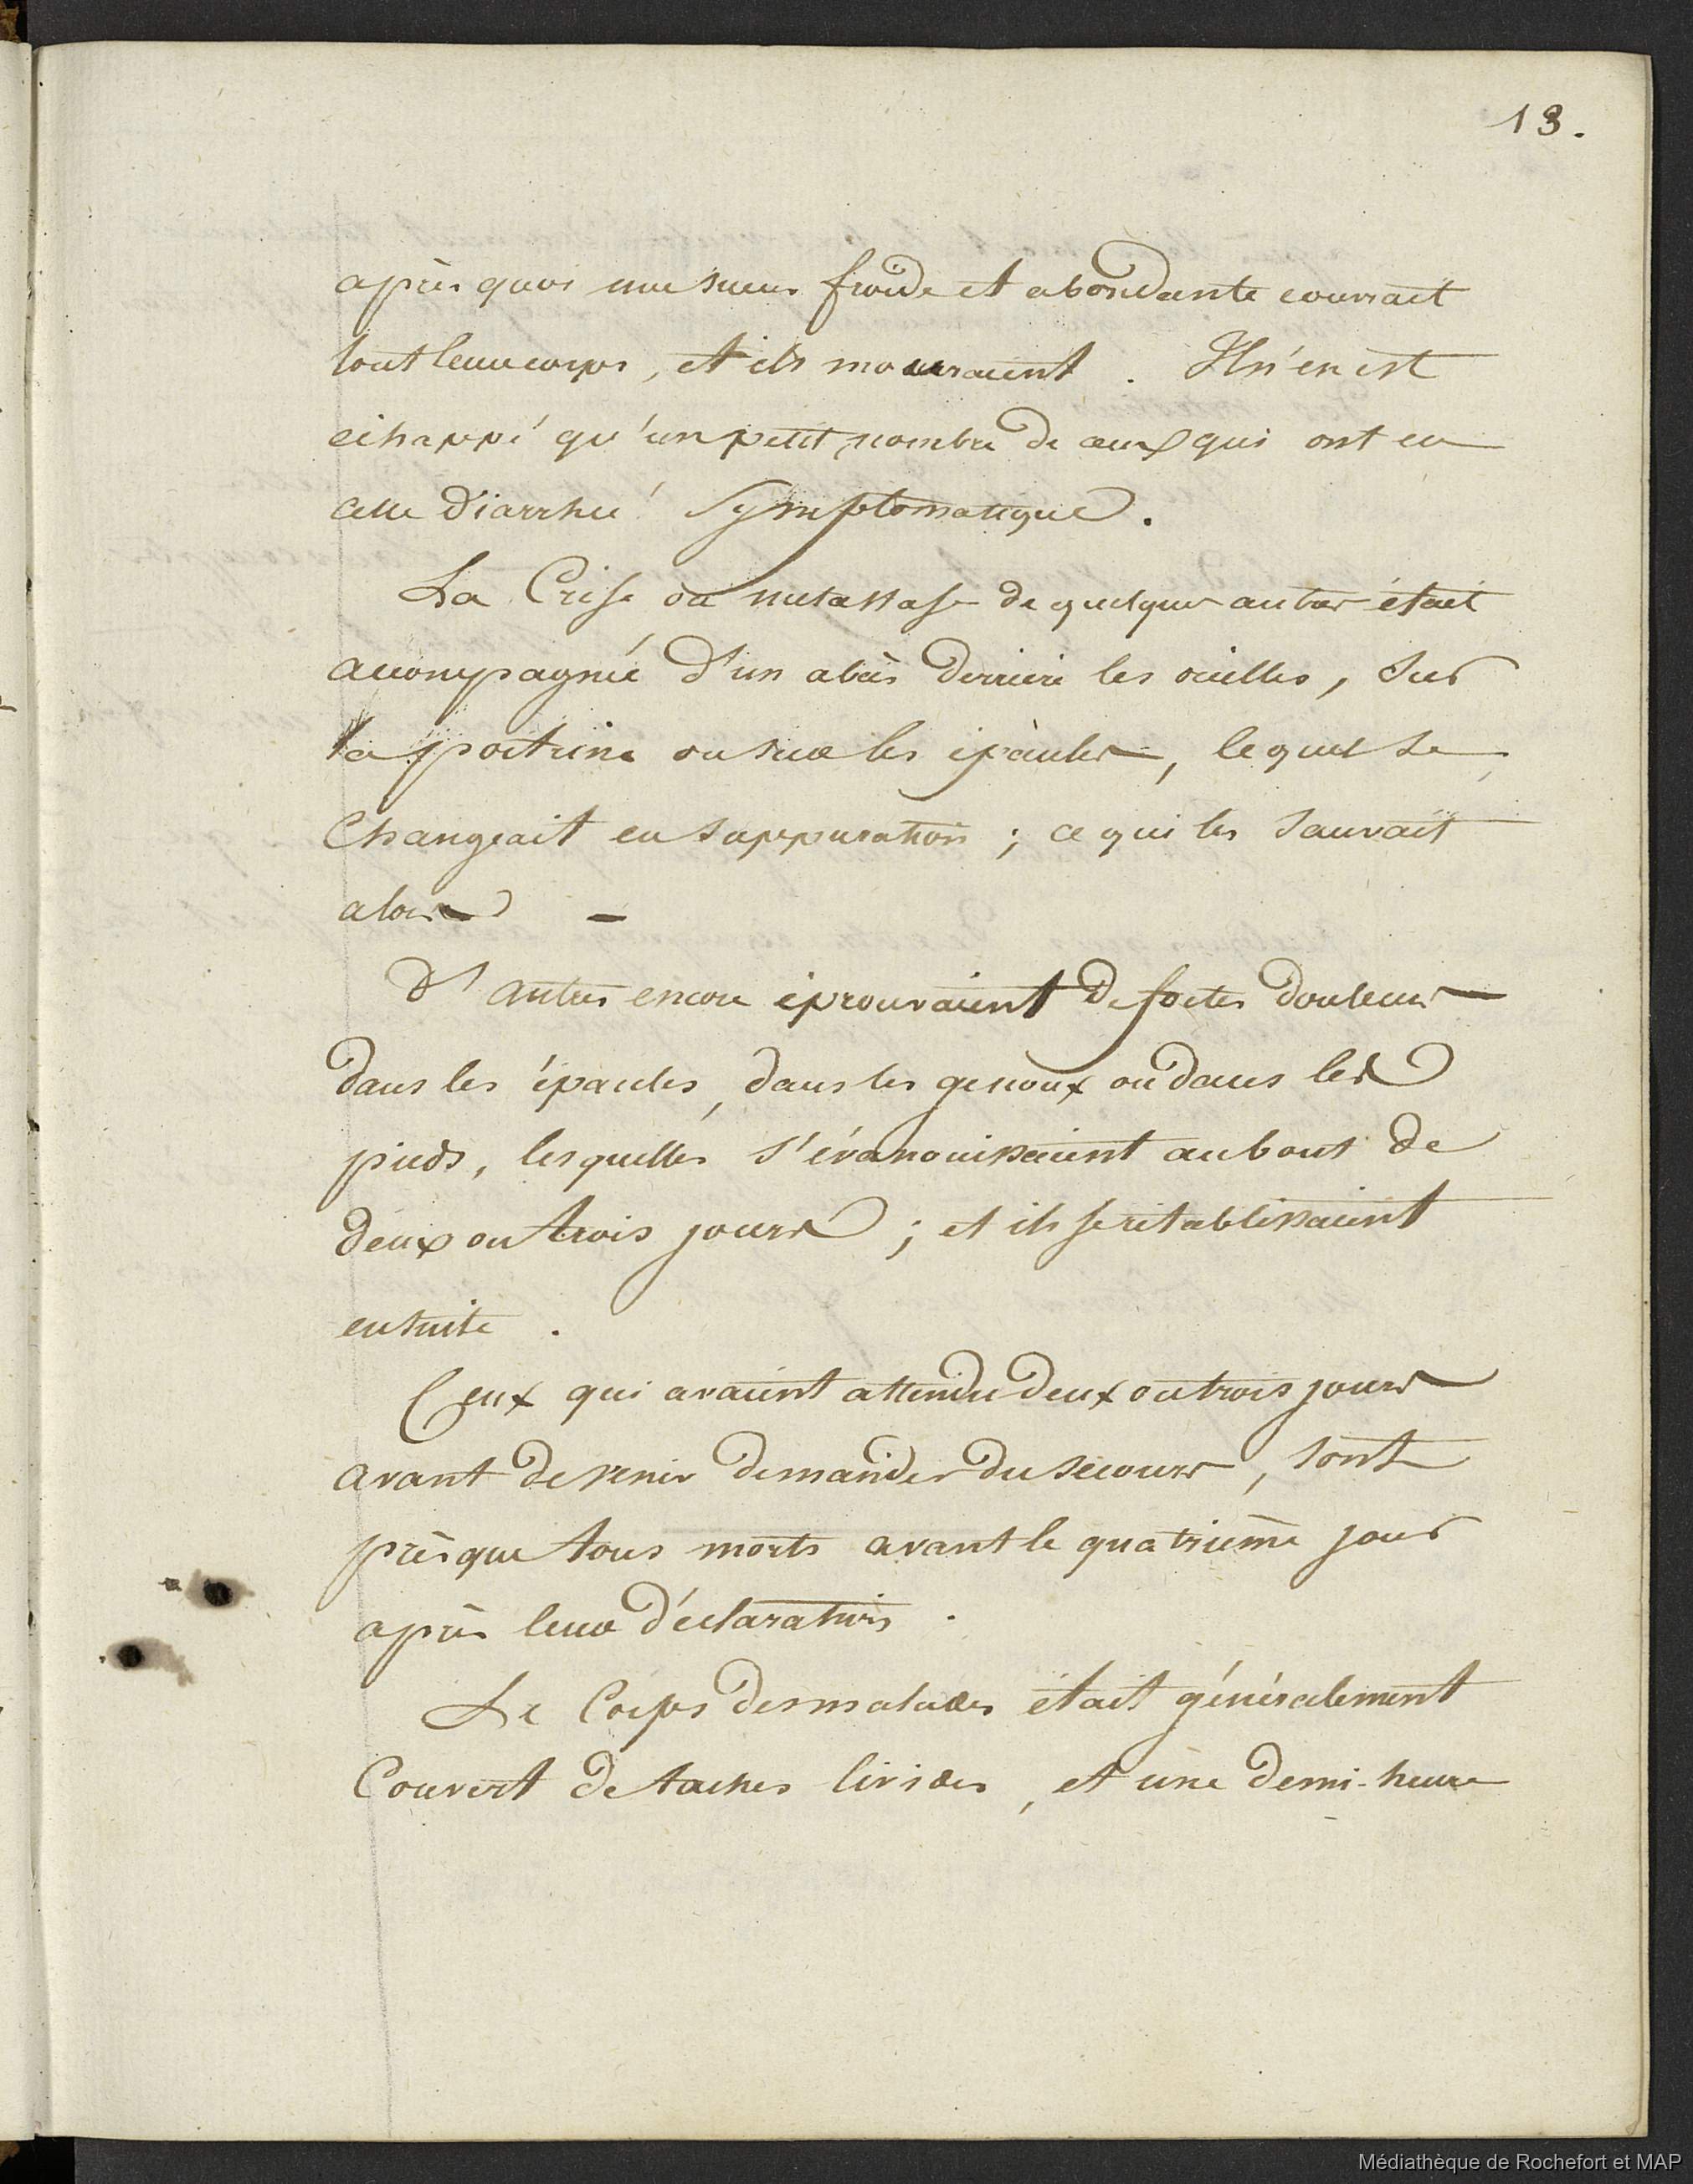 13.
après quoi une sueur froide et abondante couvrait
tout leur corps, et ils mouraient. Il n'en est
échappé qu'un petit nombre de ceux qui ont eu
cette diarrhée symptomatique.
La Crise ou métastase de quelques autres était
accompagnée d'un abcès derrière les oreilles, sur
la poitrine ou sur les épaules, lequel se
changeait en suppuration ; ce qui les sauvait
alors —
D'autres encore éprouvaient de fortes douleurs
dans les épaules, dans les genoux ou dans les
pieds, lesquelles s'évanouissaient au bout de
deux ou trois jours ; et ils se rétablissaient
ensuite.
Ceux qui avaient attendu deux ou trois jours
avant de venir demander du secours, sont
presque tous morts avant le quatrième jour
après leur déclaration.
Le Corps des malades était généralement
Couvert de taches livides, et une demi-heure
Médiathèque de Rochefort et MAP